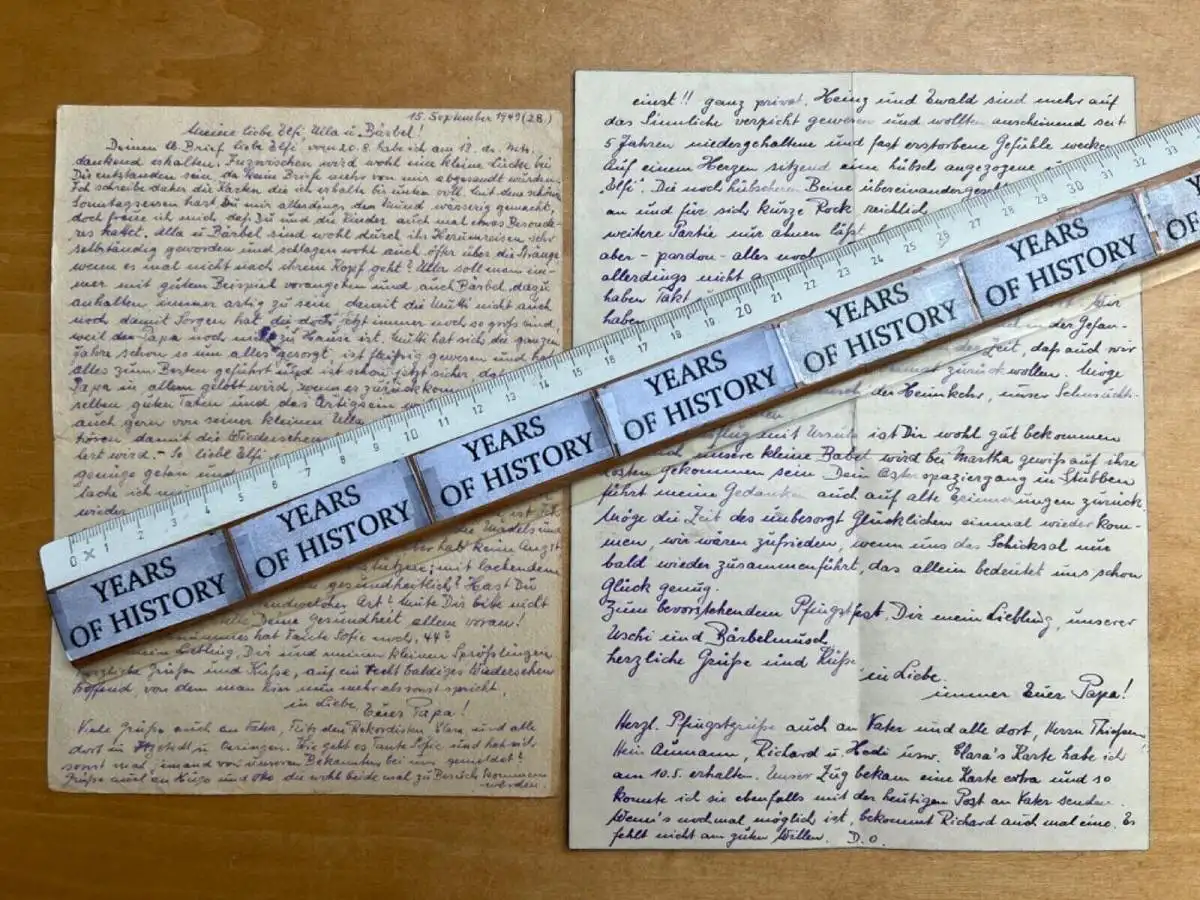 15. September 1949 (28.)
Meine liebe Elfi, Ulla u. Bärbel!
Deinen lb. Brief liebe Elfi vom 20.8. habe ich am 13. ds. Mts.
dankend erhalten. Inzwischen wird wohl eine kleine Lücke bei
Dir entstanden sein da keine Briefe mehr von mir abgesandt wurden.
Ich schreibe daher die Karten die ich erhalte bis unten voll. Mit dem schönen
Sonntagsessen hast Du mir allerdings den Mund wässerig gemacht,
doch freue ich mich daß Du und die Kinder auch mal etwas Besonde-
res hattet. Ulla u. Bärbel sind wohl durch ihr Herumreisen sehr
selbständig geworden und schlagen wohl auch öfter über die Stränge
wenn es mal nicht nach ihrem Kopf geht? Ulla soll man im-
mer mit gutem Beispiel vorangehen und auch Bärbel dazu
anhalten immer artig zu sein damit die Mutti nicht auch
noch damit Sorgen hat die doch jetzt immer noch so groß sind,
weil der Papa noch nicht zu Hause ist. Mutti hat sich die ganzen
Jahre schon so um alles gesorgt, ist fleißig gewesen und hat
alles zum Besten geführt und ist schon jetzt sicher, daß
Papa in allem gelobt wird, wenn er zurückkom
selben guten Taten und das Artigsein
auch gern von seiner kleinen Ulla
hören damit die Wiedersehen
lert wird. - So liebe Elfi
genüge getan und
lache ich
wieder
ist Ich
die Mädels und
habt keine Angst
mit lachendem
gesundheitlich? Hast Du
Art? Mute Dir bitte nicht
Deine Gesundheit allem voran!
hat Tante Sofie noch, 44?
mein Liebling, Dir und meinen kleinen Sprößlingen
herzliche Grüße und Küsse, auf ein recht baldiges Wiedersehen
hoffend, von dem man hier nun mehr als sonst spricht,
in Liebe Euer Papa!
Viele Grüße auch an Vater, Fritz den Rekordisten Clara und alle
dort in u. Geringen. Wie geht es Tante Sofie und hat sich
sonst mal jemand von unseren Bekannten bei uns gemeldet?
Grüße auch an Kugo und die wohl beide mal zu Besuch kommen
werden.
einst!! ganz privat. Heinz und Ewald sind mehr auf
das Sinnliche verpicht gewesen und wollten anscheinend seit
5 Jahren niedergehaltene und fast erstorbene Gefühle wecken
Auf einem Herzen sitzend eine hübsch angezogene
"Elfi". Die noch hübscheren Beine übereinandergeschl
an und für sich kurze Rock reichlich
weitere Partie nur ahnen läßt
aber - pardon - alles noch
allerdings nicht
haben Takt
haben
der Gefan-
der Zeit, daß auch wir
zurück wollen. Möge
der Heimkehr, unser Sehnsüchti-
mit Ursula ist Dir wohl gut bekommen
unsere kleine Babel wird bei Martha gewiß auf ihre
Kosten gekommen sein. Dein Osterspaziergang in Stubben
führt meine Gedanken auch auf alte Erinnerungen zurück
Möge die Zeit des unbesorgt Glücklichen einmal wieder kom-
men, wir wären zufrieden, wenn uns das Schicksal nur
bald wieder zusammenführt, das allein bedeutet uns schon
Glück genug.
Zum bevorstehendem Pfingstfest, Dir mein Liebling, unserer
Uschi und Bärbelmusch
herzliche Grüße und Küße
in Liebe.
immer Euer Papa!
Herzl. Pfingstgrüße auch an Vater und alle dort, Herrn Thießen
Hein Aumann, Richard u. Hedi usw. Clara's Karte habe ich
am 10.5. erhalten. Unser Zug bekam eine Karte extra und so
konnte ich sie ebenfalls mit der heutigen Post an Vater senden.
Wenn's nochmal möglich ist, bekommt Richard auch mal eine. Es
fehlt nicht am guten Willen. D.O.
0 1 2 3 4 5 6 7 8 9 10 11 12 13 14 15 16 17 18 19 20 21 22 23 24 25 26 27 28 29 30 31 32 33
YEARS
OF HISTORY
YEARS
OF HISTORY
YEARS
OF HISTORY
YEARS
OF HISTORY
YEARS
OF HISTORY
YEARS
OF HISTORY
Y
OF